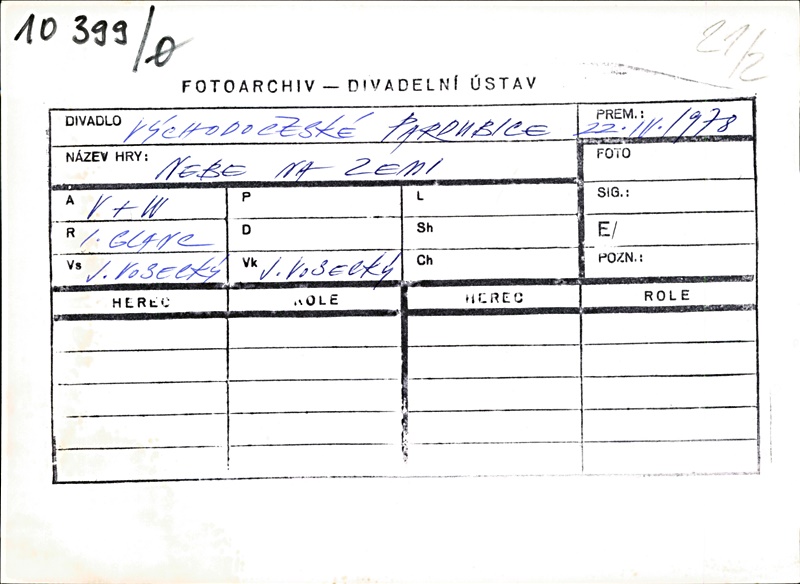 10 399/0
21/2
FOTOARCHIV — DIVADELNÍ ÚSTAV
DIVADLO VÝCHODOČESKÉ PARDUBICE
PREM.: 22. IV. / 1978
NÁZEV HRY: NEBE NA ZEMI
FOTO
A V + W
P
L
SIG.:
R I. GLANC
D
Sh
E/
Vs J. VOSECKÝ
Vk J. VOSECKÝ
Ch
POZN.:
HEREC ROLE HEREC ROLE